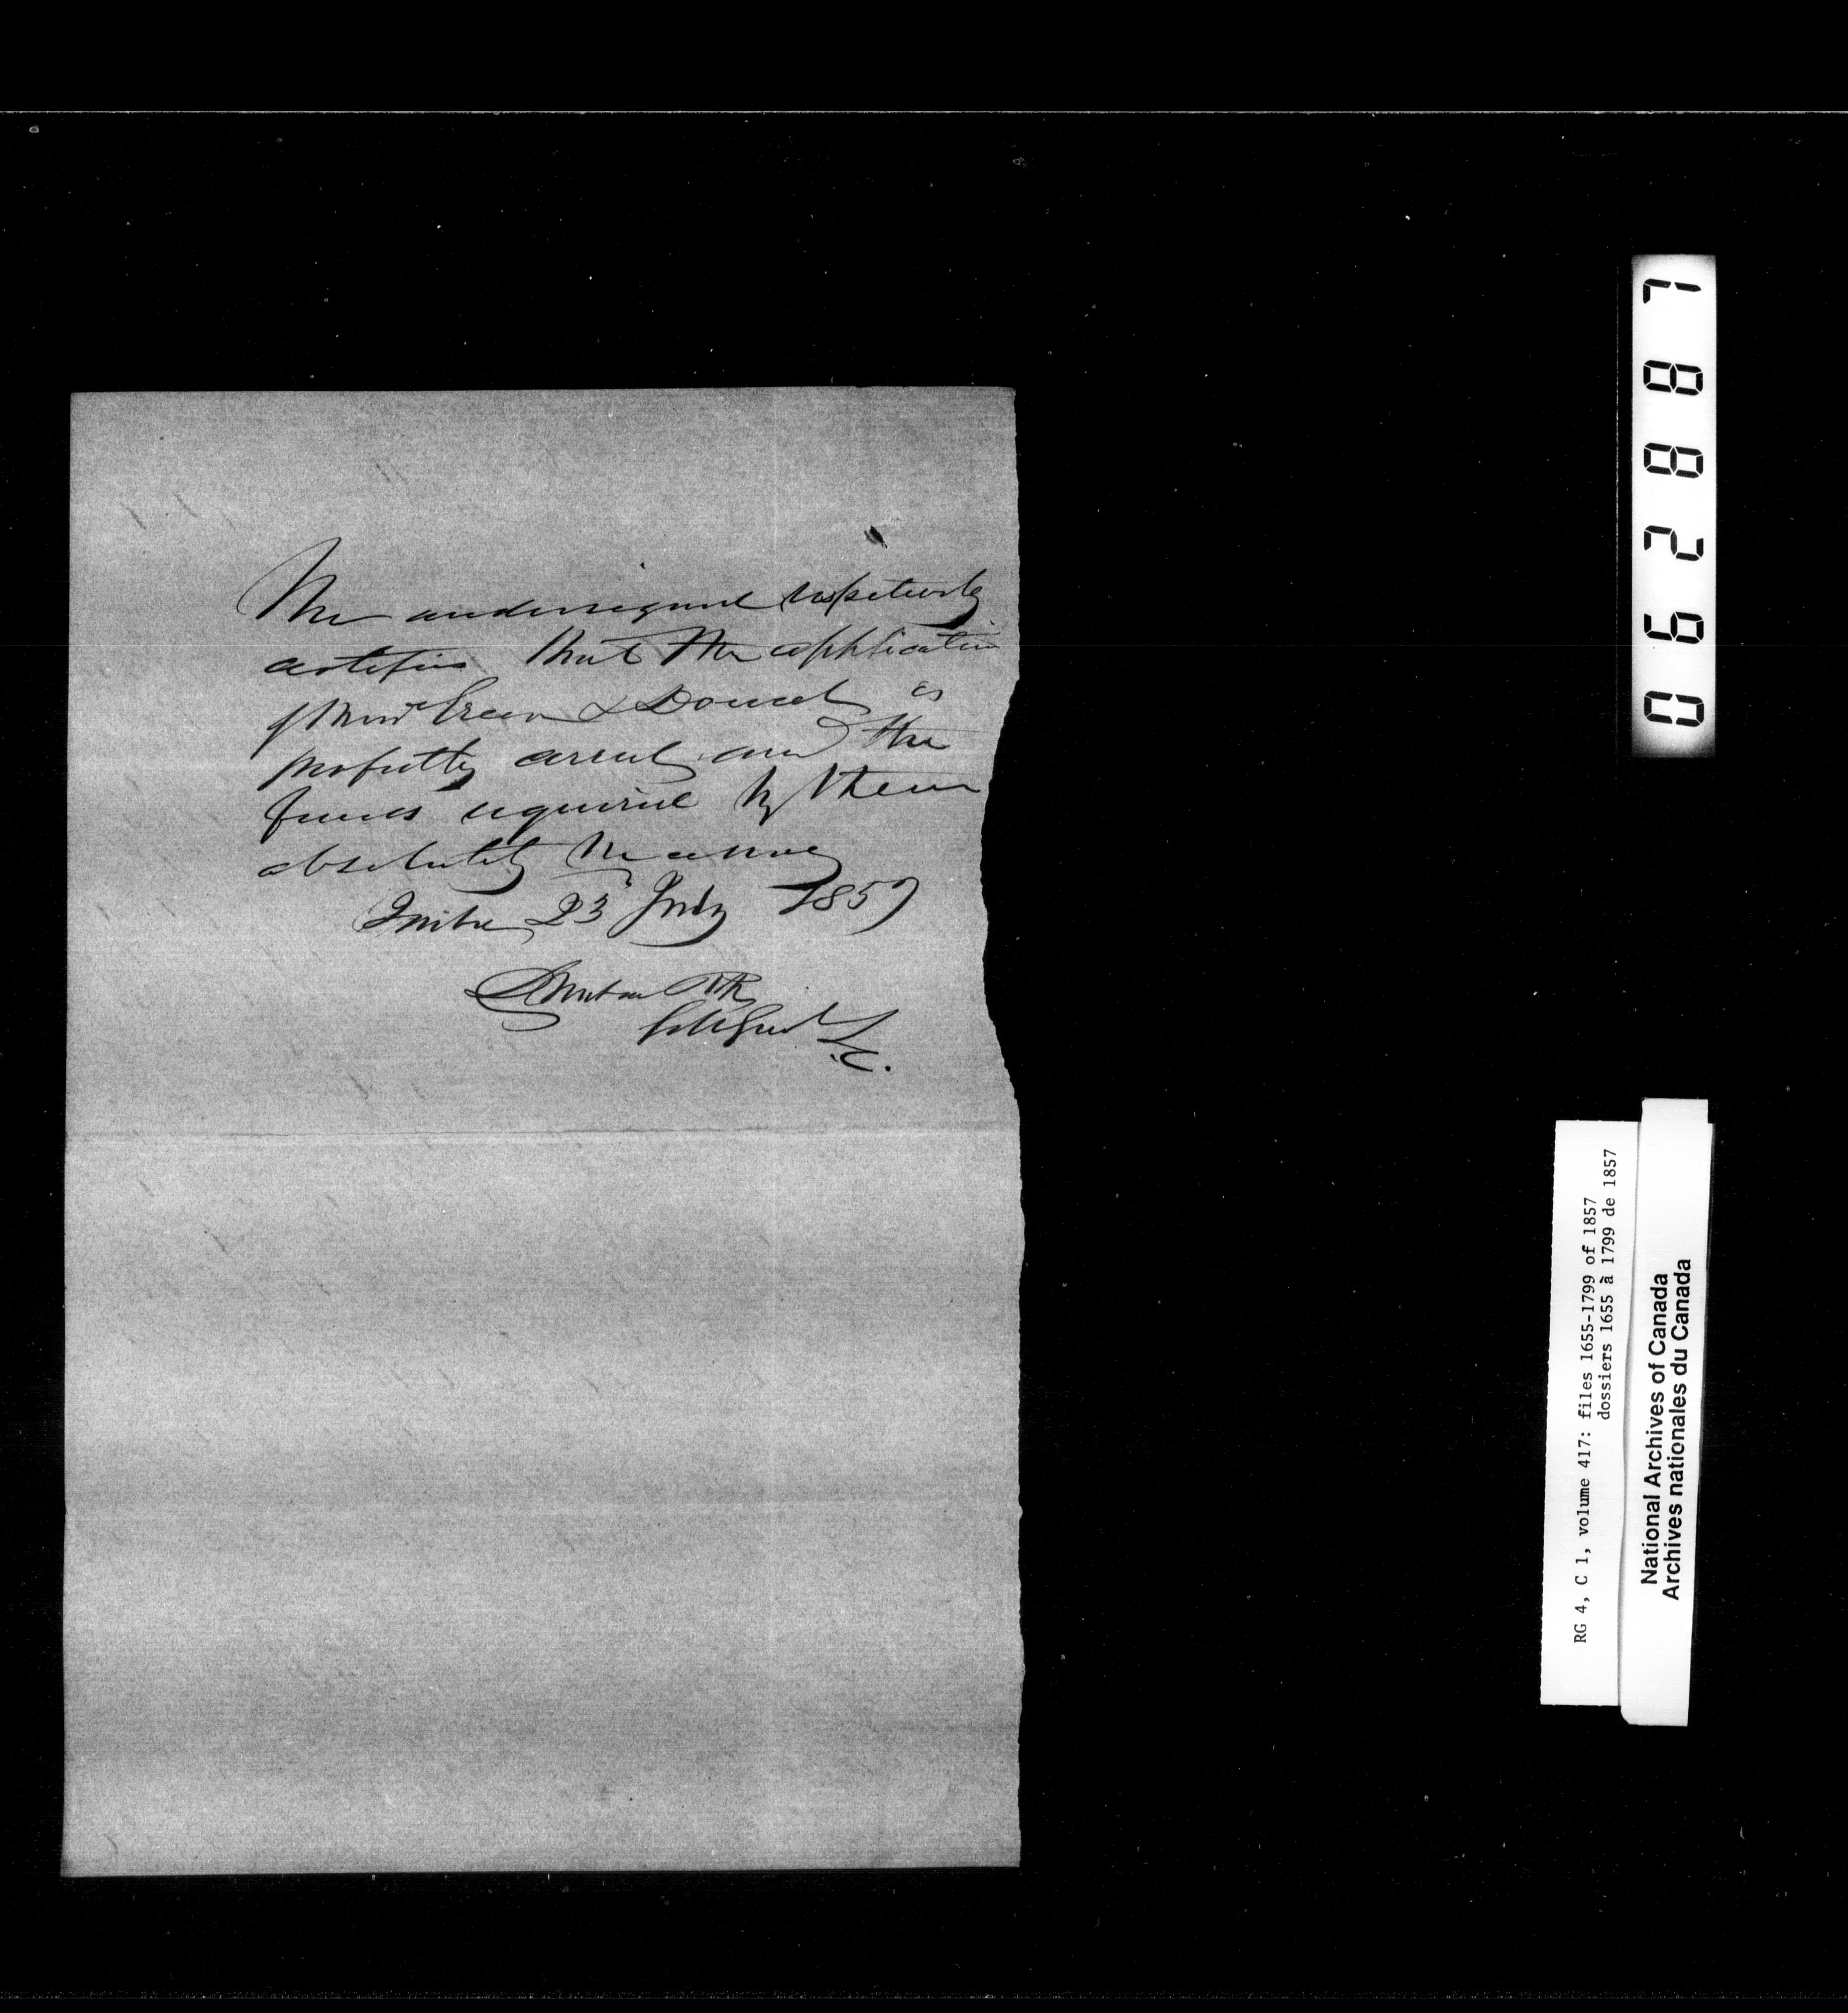 The undersigned respectfully
certifies that the application
of Mess<sup>rs</sup> Green & Doucet is
perfectly correct and the
funds required by them
absolutely necessary
Quebec 23 July 1857
Sol Genl L.C.
062887
RG 4, C 1, volume 417: files 1655-1799 of 1857
dossiers 1655 à 1799 de 1857
National Archives of Canada
Archives nationales du Canada